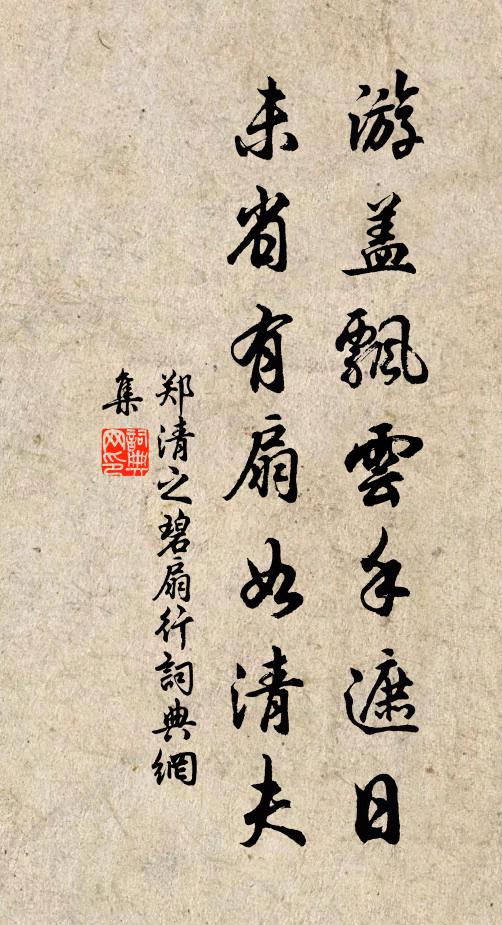 游盖飘雲手遮日
未省有扇如清夫
郑清之碧扇行詞典網
集
詞典网印